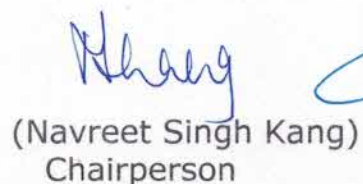 (Navreet Singh Kang)
Chairperson